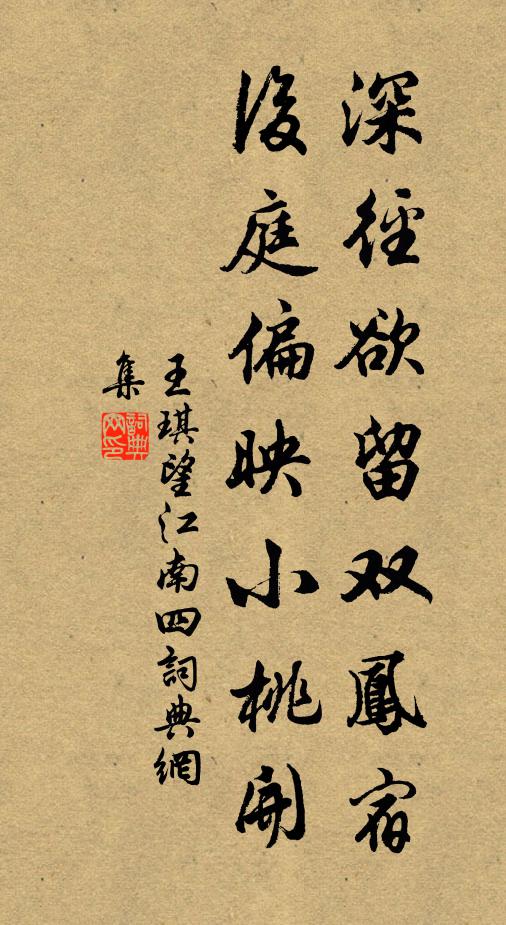 深徑欲留双鳳宿
後庭偏映小桃開
王琪望江南四詞典網
集
詞典網印